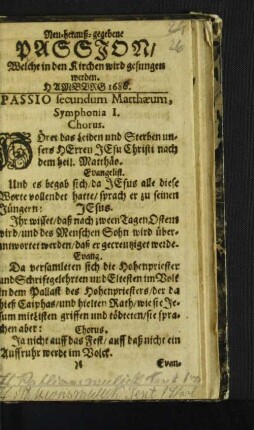 Neu-herauß-gegebene
PASSJON/
Welche in den Kirchen wird gesungen
werden.
HAMBURG 1686.
PASSIO secundum Matthæum,
Symphonia I.
Chorus.
HOret das Leiden und Sterben un-
sers HErren JEsu Christi nach
dem heil. Matthäo.
Evangelist.
Und es begab sich/da JEsus alle diese
Worte vollendet hatte/sprach er zu seinen
Jüngern: JEsus.
Ihr wisset/daß nach zween Tagen Ostern
wird/und des Menschen Sohn wird über-
antwortet werden/daß er gecreutziget werde.
Evang.
Da versamleten sich die Hohenpriester
und Schrifftgelehrten und Eltesten im Volk
in dem Pallast des Hohenpriesters/der da
hieß Caiphas/und hielten Rath/wie sie Je-
sum mit Listen griffen und tödteten/sie spra-
chen aber: Chorus.
Ja nicht auff das Fest/auff daß nicht ein
Auffruhr werde im Volck.
Evan-
26